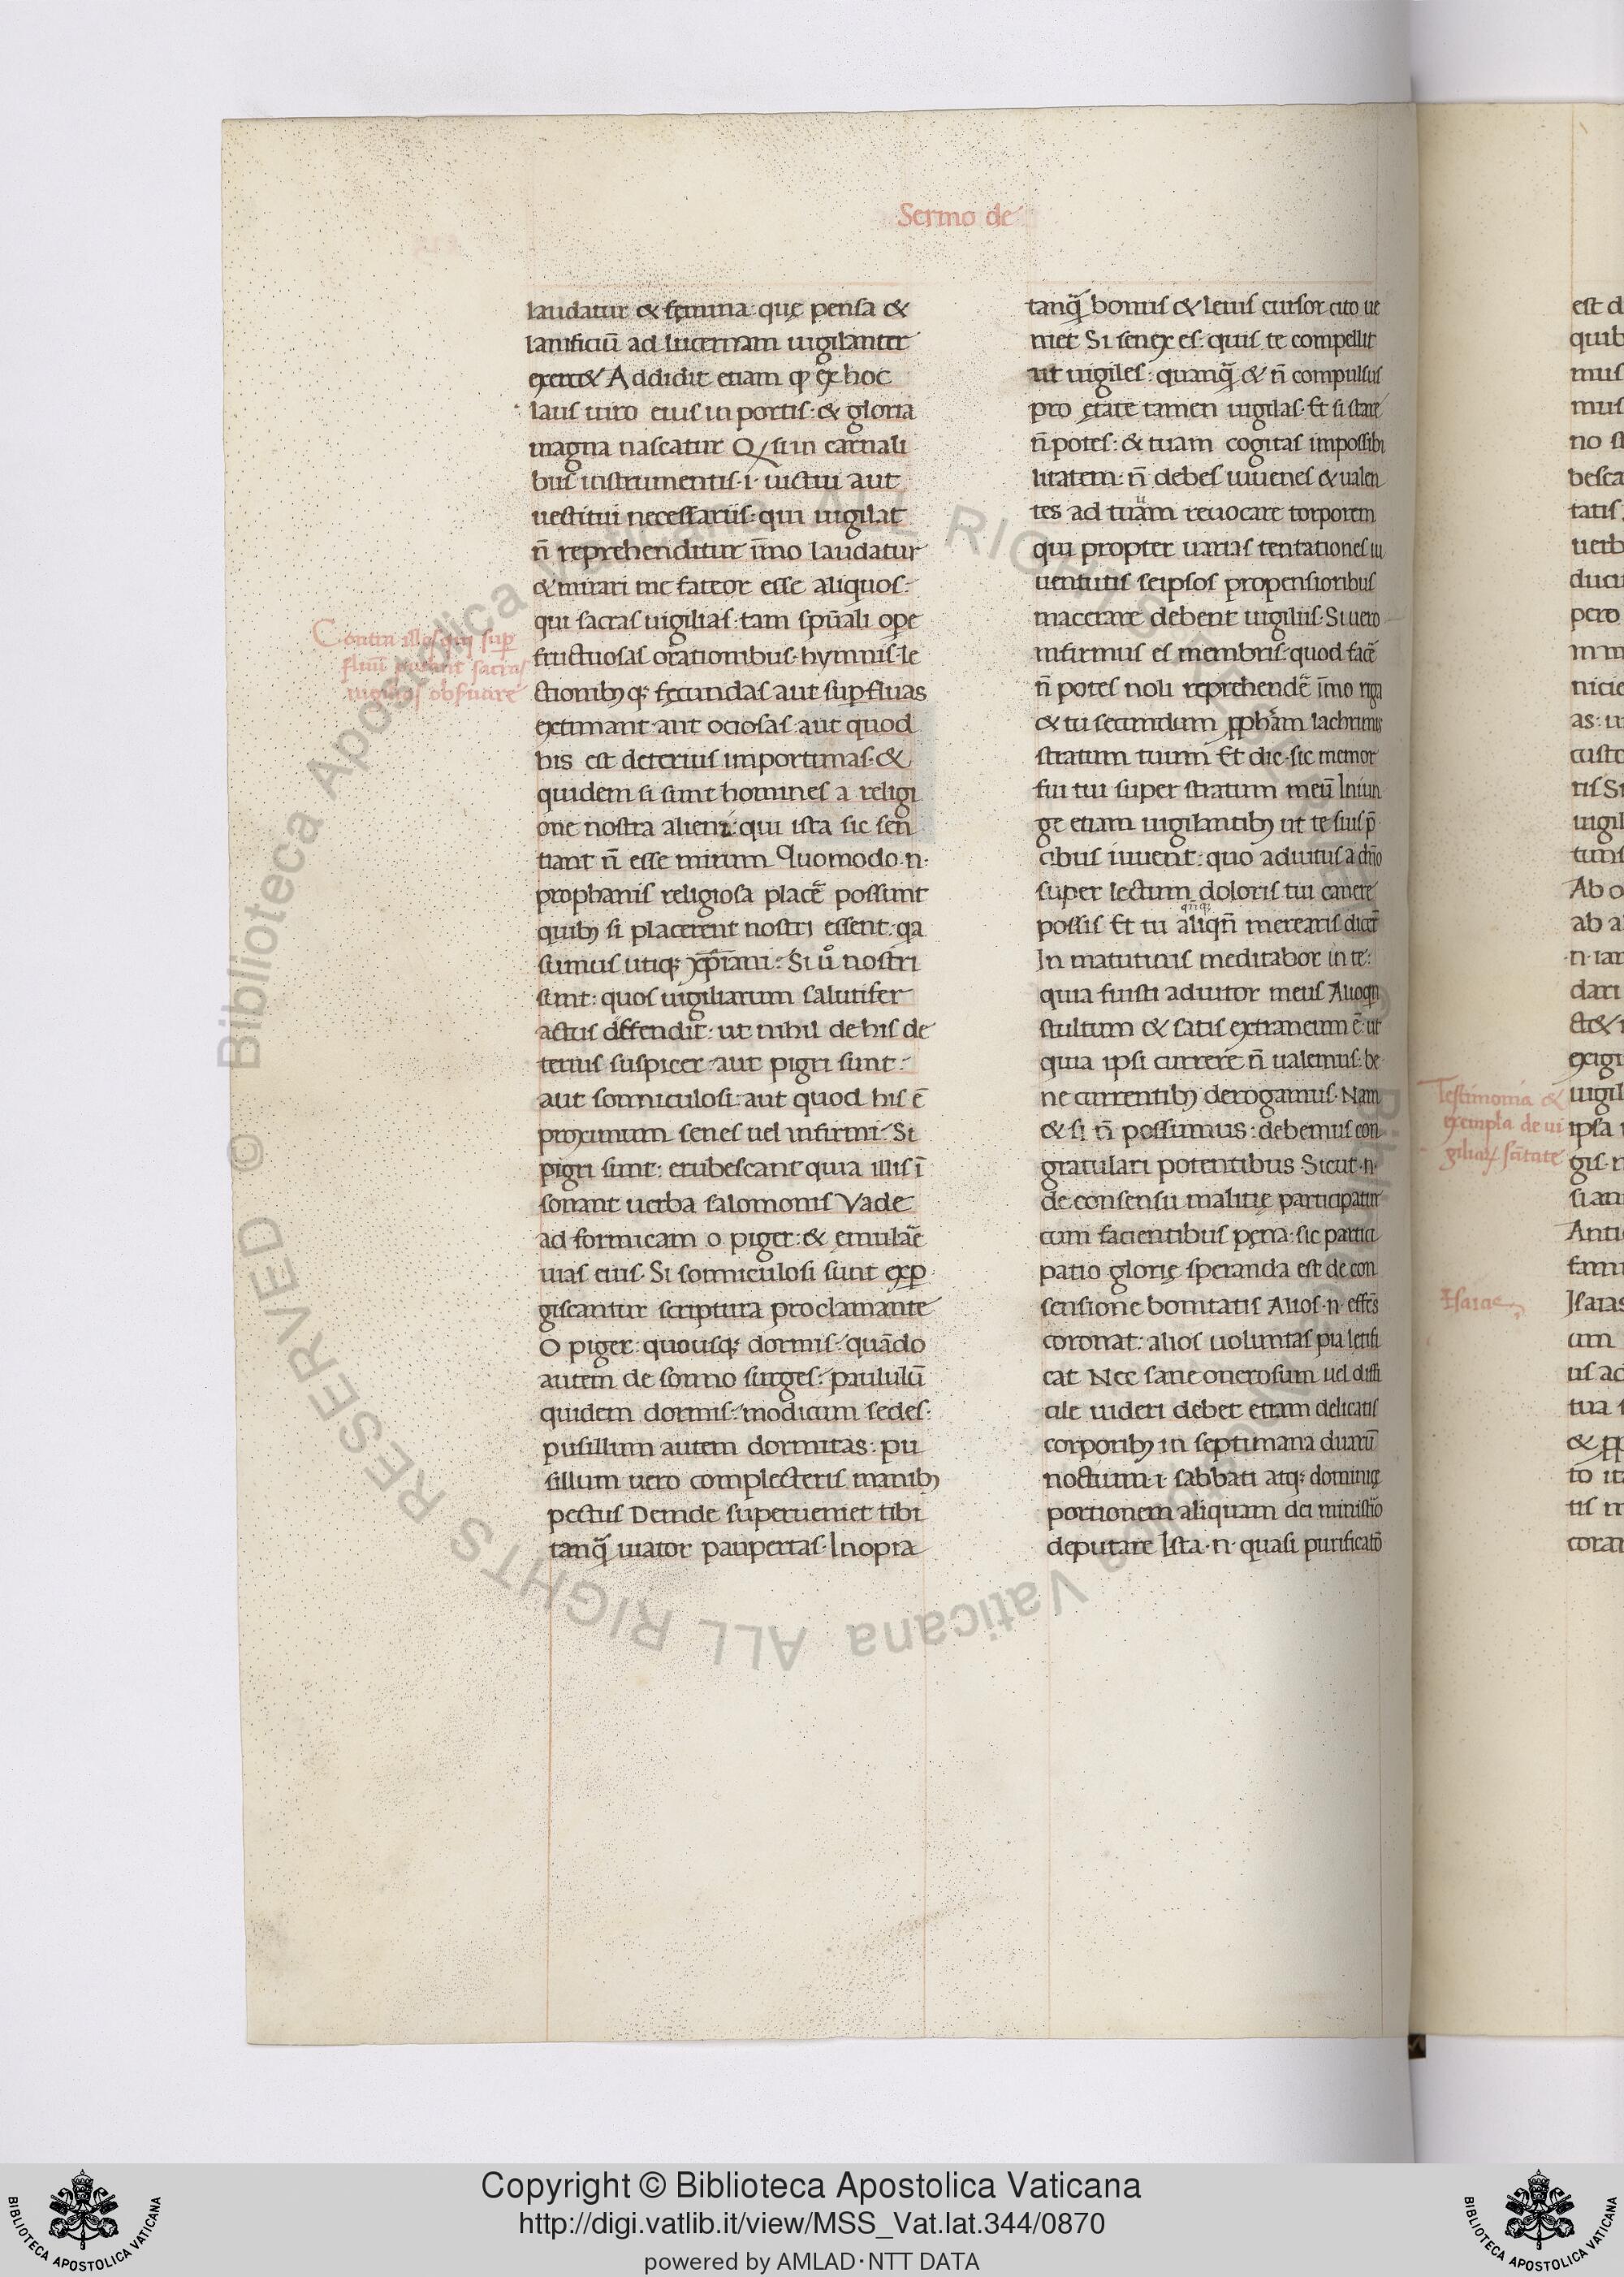 Sermo de
laudatur & femina: quę pensa &
lanificiū ad lucernam uigilanter
exerc& Addidit etiam ꝙ ex hoc
laus uiro eius in portis: & gloria
magna nascatur Qsi in carnali
bus instrumentis· i· uictui aut
uestitui necessariis: qui uigilat
n̄ reprehenditur īmo laudatur
& mirari me fateor esse aliquos:
qui sacras uigilias tam spūali ope
fructuosas orationibus· hymnis· le
ctionibȝ qȝ fecundas aut suꝑfluas
extimant· aut ociosas· aut quod
his est deterius importunas· &
quidem si sunt homines a religi
one nostra alieni: qui ista sic sen
tiant n̄ esse mirum Quomodo· n·
prophanis religiosa placē possunt
quibȝ si placerent nostri essent: qa
sumus utiqȝ xp̄iani: Si uo nostri
sunt: quos uigiliarum salutifer
actus offendit: ut nihil de his de
terius suspicer· aut pigri sunt:
aut somniculosi: aut quod his ē
proximum senes uel infirmi· Si
pigri sunt: erubescant quia illis ī
sonant uerba salomonis Vade
ad formicam o piger: & emulāe
uias eius· Si somniculosi sunt exp
giscantur scriptura proclamante
O piger: quousqȝ dormis: quādo
autem de somno surges: paululū
quidem dormis: modicum sedes:
pusillum autem dormitas: pu
sillum uero complecteris manibȝ
pectus Deinde superueniet tibi
tanq̄ uiator paupertas· Inopia
Contra illos qui sup
fluū putant sacras
uigilias obseruare
tanq̄ bonus & leuis cursor cito ue
niet Si senex es: quis te compellit
ut uigiles: quanq̄ & n̄ compulsus
pro etate tamen uigilas· Et si stare
n̄ potes: & tuam cogitas impossibi
litatem: n̄ debes iuuenes & ualen
tes ad tuam reuocare torporem
qui propter uarias tentationes iu
uentutis seipsos propensioribus
macerare debent uigiliis· Si uero
infirmus es membris: quod facē
n̄ potes noli reprehendē īmo riga
& tu secundum ꝓpham lachrimis
stratum tuum Et dic· sic memor
fui tui super stratum meū Iniun
ge etiam uigilantibȝ ut te suis p̄
cibus iuuent: quo adiutus a dn̄o
super lectum doloris tui canere
possis Et tu aliqn̄ merearis dicē
In matutinis meditabor in te:
quia fuisti adiutor meus Alioqn
stultum & satis extraneum ē: ut
quia ipsi currere n̄ ualemus: be
ne currentibȝ derogamus· Nam
& si n̄ possumus: debemus con
gratulari potentibus Sicut· n·
de consensu malitię participatur
cum facientibus pęna: sic partici
patio glorię speranda est de con
sensione bonitatis Alios· n· effēs
coronat: alios uoluntas pia letifi
cat Nec sane onerosum uel diffi
cile uideri debet etiam delicatis
corporibȝ in septimana duarū
noctium· i· sabbati atqȝ dominię
portionem aliquam dei ministio
deputare Ista· n· quasi purificatō
Testimonia &
exempla de ui
giliaꝝ sc̄tate
Isaiae
Copyright © Biblioteca Apostolica Vaticana
http://digi.vatlib.it/view/MSS_Vat.lat.344/0870
powered by AMLAD·NTT DATA
BIBLIOTECA APOSTOLICA VATICANA
BIBLIOTECA APOSTOLICA VATICANA